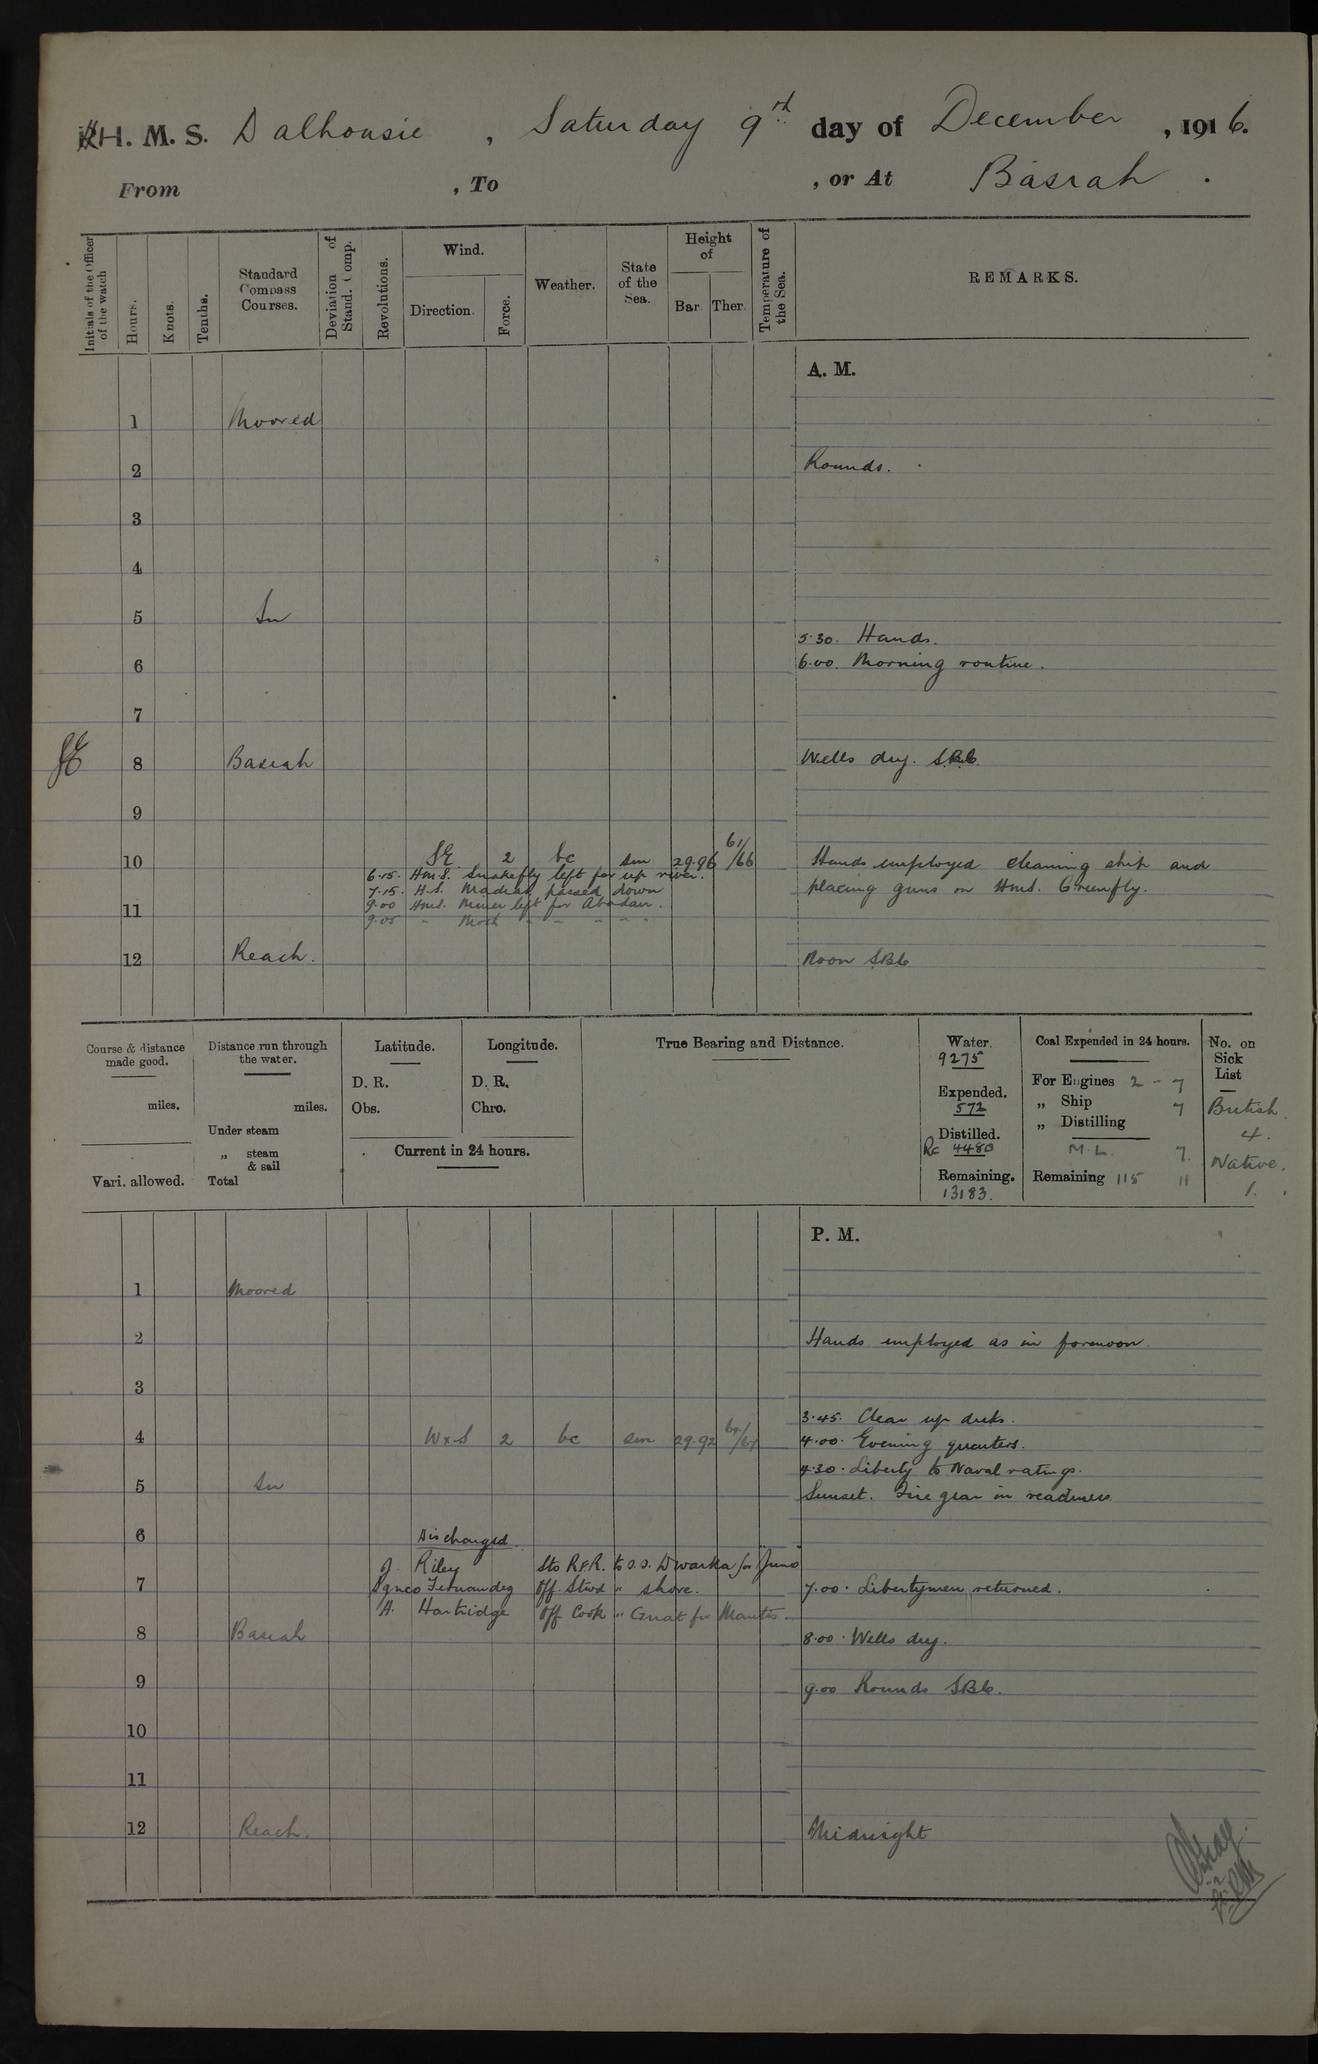 H. M. S. Dalhousie, Saturday 9th day of December, 1916.
From , To , or At Basrah.
Initials of the Officer of the watch
Hours.
Knots.
Tenths.
Standard Compass Courses.
Deviation of Stand. Comp.
Revolutions.
Wind.
Direction.
Force.
Weather.
State of the Sea.
Height of
Bar.
Ther.
Temperature of the Sea.
REMARKS.
A. M.
1 Moored
2 Rounds.
3
4
5 In
5.30. Hands.
6 6.00. Morning routine.
7
8 Basrah Wells dry. SBC
9
10 SE 2 bc sm 29.96 61/66 Hands employed cleaning ship and
6.15. H.M.S. Snakefly left for up river.
7.15. H.S. Madras passed down placing guns on H.M.S. Greenfly.
11 9.00 H.M.S. Miner left for Abadan.
9.05 " Moth " " " " "
12 Reach. Noon SBC
Course & distance made good.
miles.
Vari. allowed.
Distance run through the water.
miles.
Under steam
„ steam & sail
Total
Latitude.
D. R.
Obs.
Longitude.
D. R.
Chro.
Current in 24 hours.
True Bearing and Distance.
Water.
9275
Expended.
572
Distilled.
Rc 4480
Remaining.
13183.
Coal Expended in 24 hours.
For Engines 2 - 7
„ Ship 7
„ Distilling
M.L. 7.
Remaining 115 11
No. on Sick List
British.
4.
Native.
1.
P. M.
1 Moored
2 Hands employed as in forenoon.
3
3.45. Clear up decks.
4 WxS 2 bc sm 29.92 4.00. Evening quarters.
4.30. Liberty to Naval ratings.
5 In Sunset. Fire gear in readiness.
6 Discharged
J. Riley Sto R.F.R. to S.S. Dwarka for "Juno"
7 Fernandez Off. Stwd " shore. 7.00. Libertymen returned.
A. Hartridge Off Cook " Gnat for Mantis.
8 Basrah 8.00. Wells dry.
9 9.00 Rounds SBC.
10
11
12 Reach. Midnight